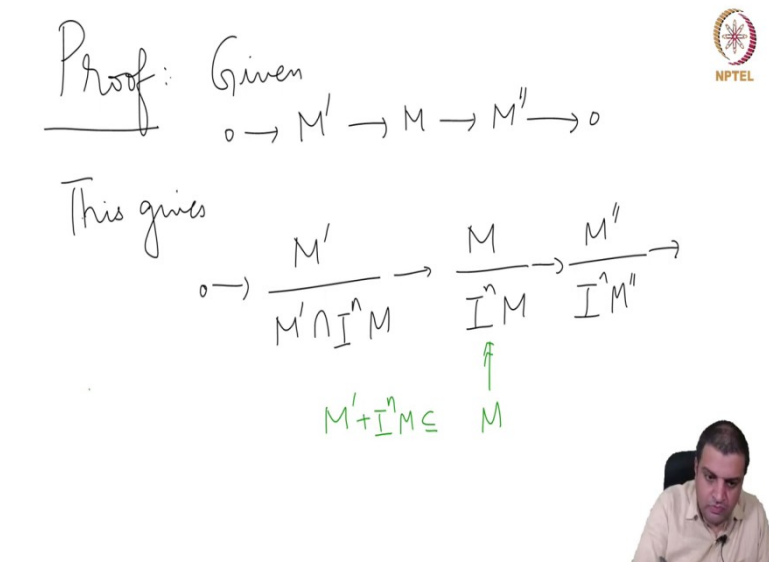 NPTEL
Proof: Given
0 → M' → M → M'' → 0
This gives
0 → M' / M' ∩ IⁿM → M / IⁿM → M'' / IⁿM'' →
M' + IⁿM ⊆ M